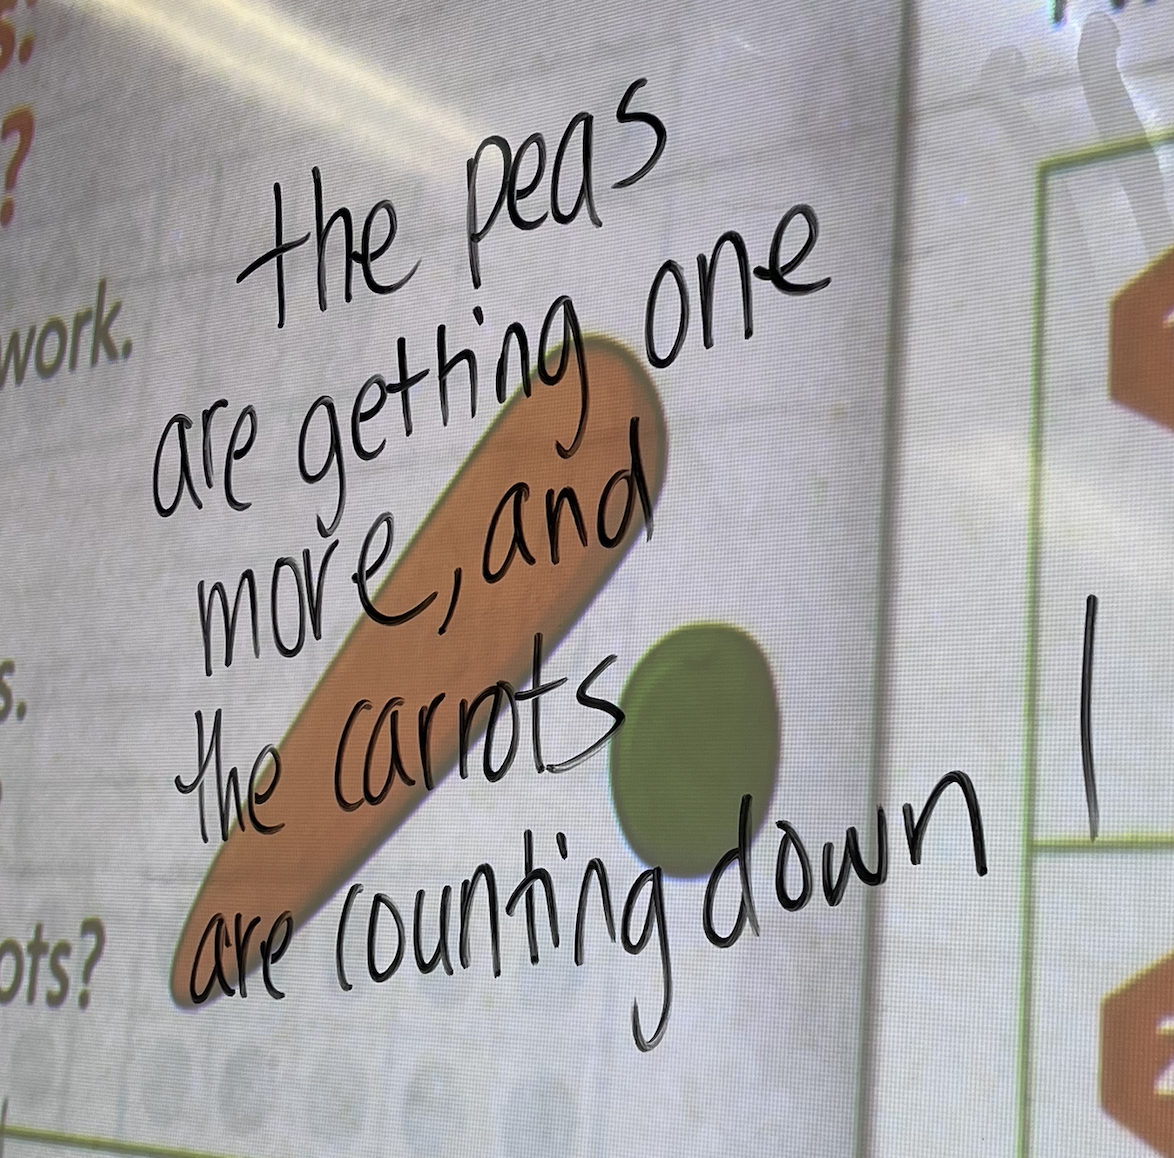 s:
?
work.
s.
ots?
the peas
are getting one
more, and
the carrots
are counting down 1